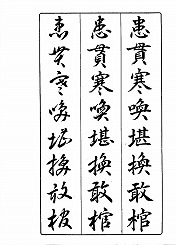 患貫寒喚堪換敢棺
患貫寒喚堪換敢棺
患貫寒喚堪換敢棺